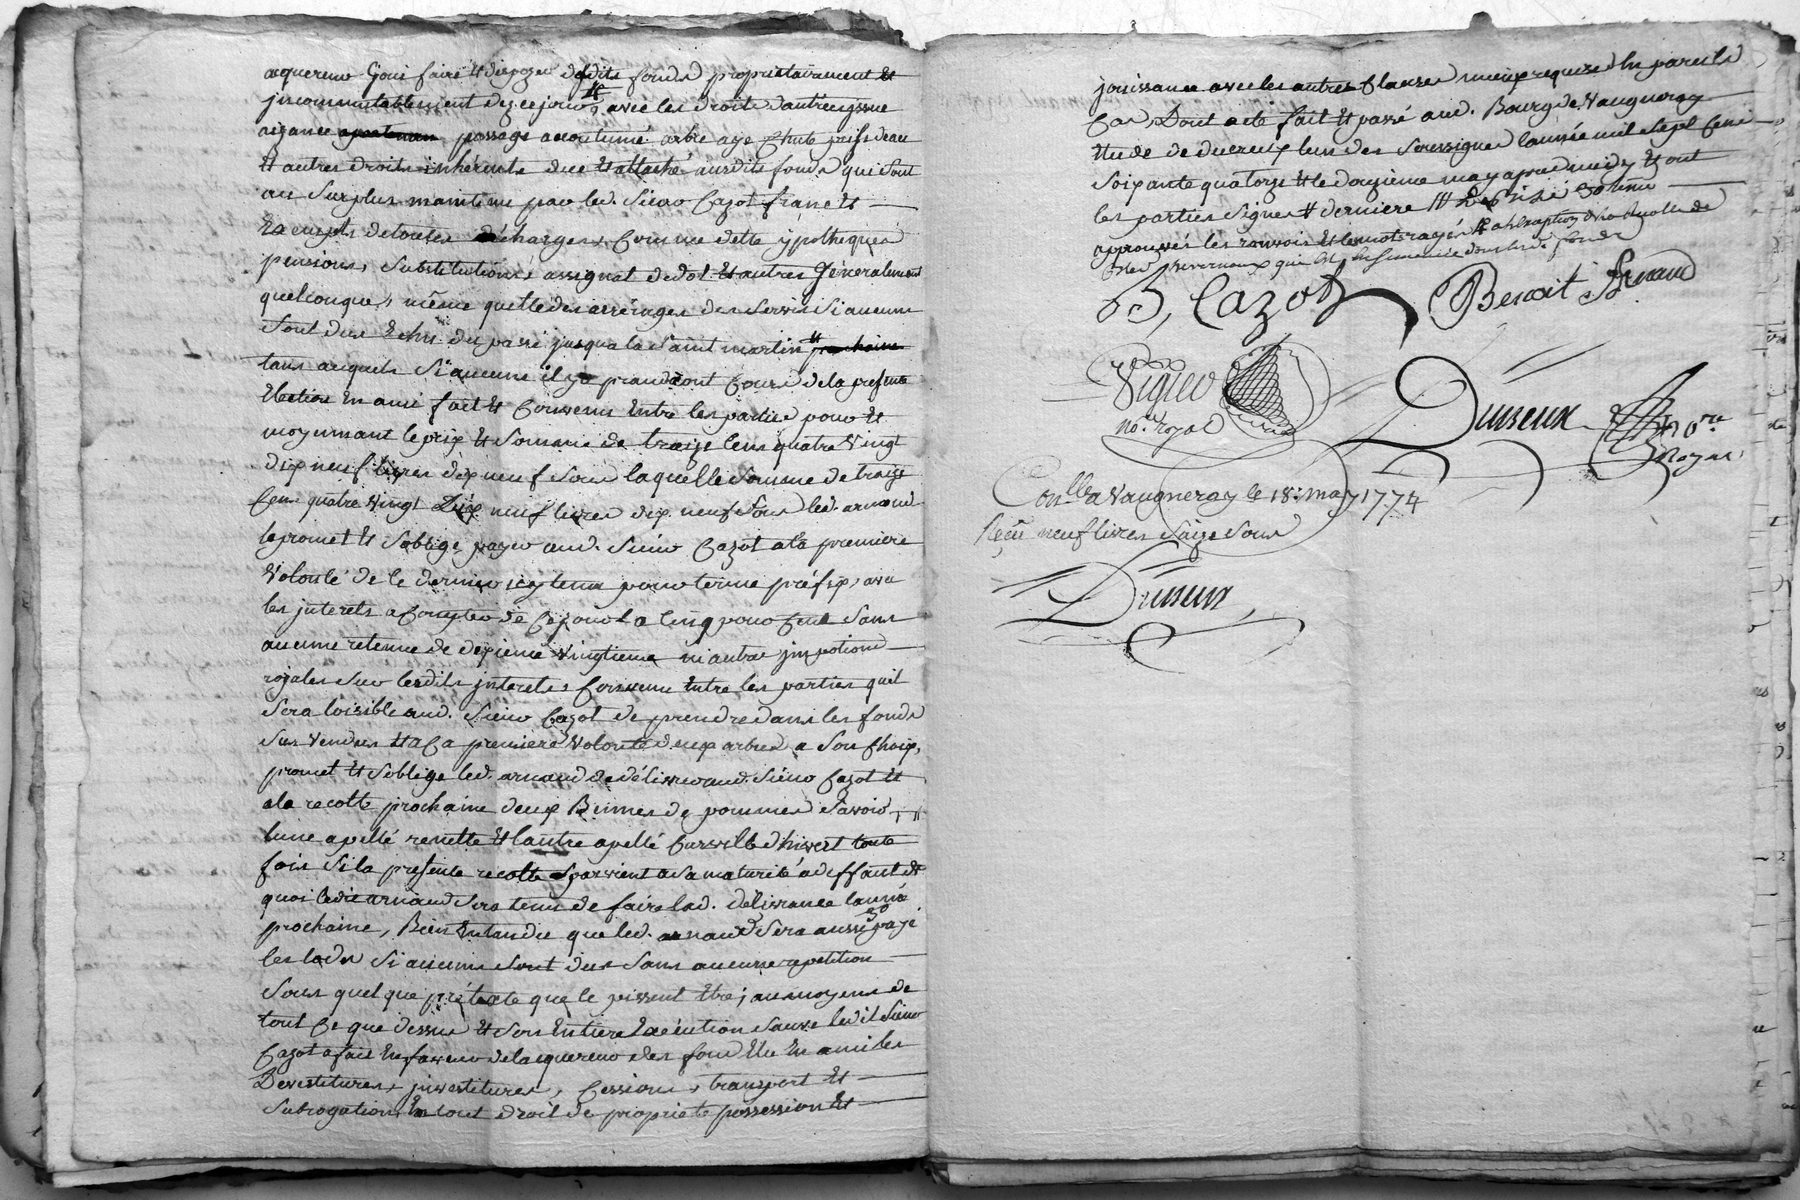 acquereur jouir faire et disposer desdits fonds proprietairement et
jncommutablement dez ce jour, avec les droits dantrée yssue
aizance passage accoutumé arbre aye chute prise deau
et autres droits inherents dus et attaché ausdits fonds qui sont
au surplus maintenu par led. sieur Cazot francs et
exempts de toutes charges, comme dette ypotheques
pensions, substitutions, assignat de dot et autres generalement
quelconques, même quitte des arrérages des servis si aucuns
sont dus echu du passé jusqua la saint martin
tans auquels si aucuns il y a prandront cours de la presente
en ausi fait et convenu entre les partie pour et
moyennant le prix et somme de traize cens quatre vingt
dix neuf livres dix neuf sous laquelle somme de traize
cens quatre vingt dix neuf livres dix neuf sous led. arnaud
promet et soblige payer aud. sieur Cazot a la premiere
volonté de ce dernier pour terme préfix, avec
les jnterets a compter de ce jour a cinq pour cent sans
aucune retenue de dixieme vingtieme ni autre jmpotions
royales sur lesdits jnterets, convenu entre les parties quil
sera loisible aud. sieur Cazot de prendre dans les fonds
sus vendus et a ca premiere volonté deux arbres a son choix,
promet et soblige led. arnaud de délivrer aud. sieur Cazot et
a la recolte prochaine deux Bennes de pommes savoir
lune apellé renette et lautre apellé d'hivert toute
fois si la presente recolte parvient a sa maturité a deffaut de
quoi ledit arnaud sera tenu de faire lad. délivrance lanné
prochaine, Bien entandu que led. arnaud sera aussi payé
les lods si aucuns sont dus sans aucune repetition
sous quelque prétexte que se puissent etre; au moyens de
tout ce que dessus et son entiere execution sauve ledit sieur
Cazot a fait en faveur de lacquereur des fond en ausi les
Devestitures, jnvestitures, cessions, transport et
subrogation en tout droit de propriete possession et
jouissance avec les autres clauses mieux requise en pareils
Cas, Dont acte fait et passé aud. Bourg de Vaugneray
etude de ducreux lun des soussignes lannée mil sept cens
soixante quatorze et le douzieme may apres midy et ont
les parties signer derniere
approuvés les renvois et les mots rayés
B, Cazot Benoit Arnaud
Vigier
no.re royal
Dusseux no.re
Royal
Con.lle a Vaugneray le 18: may 1774
Reçu neuf livres saize sous
Dusseux